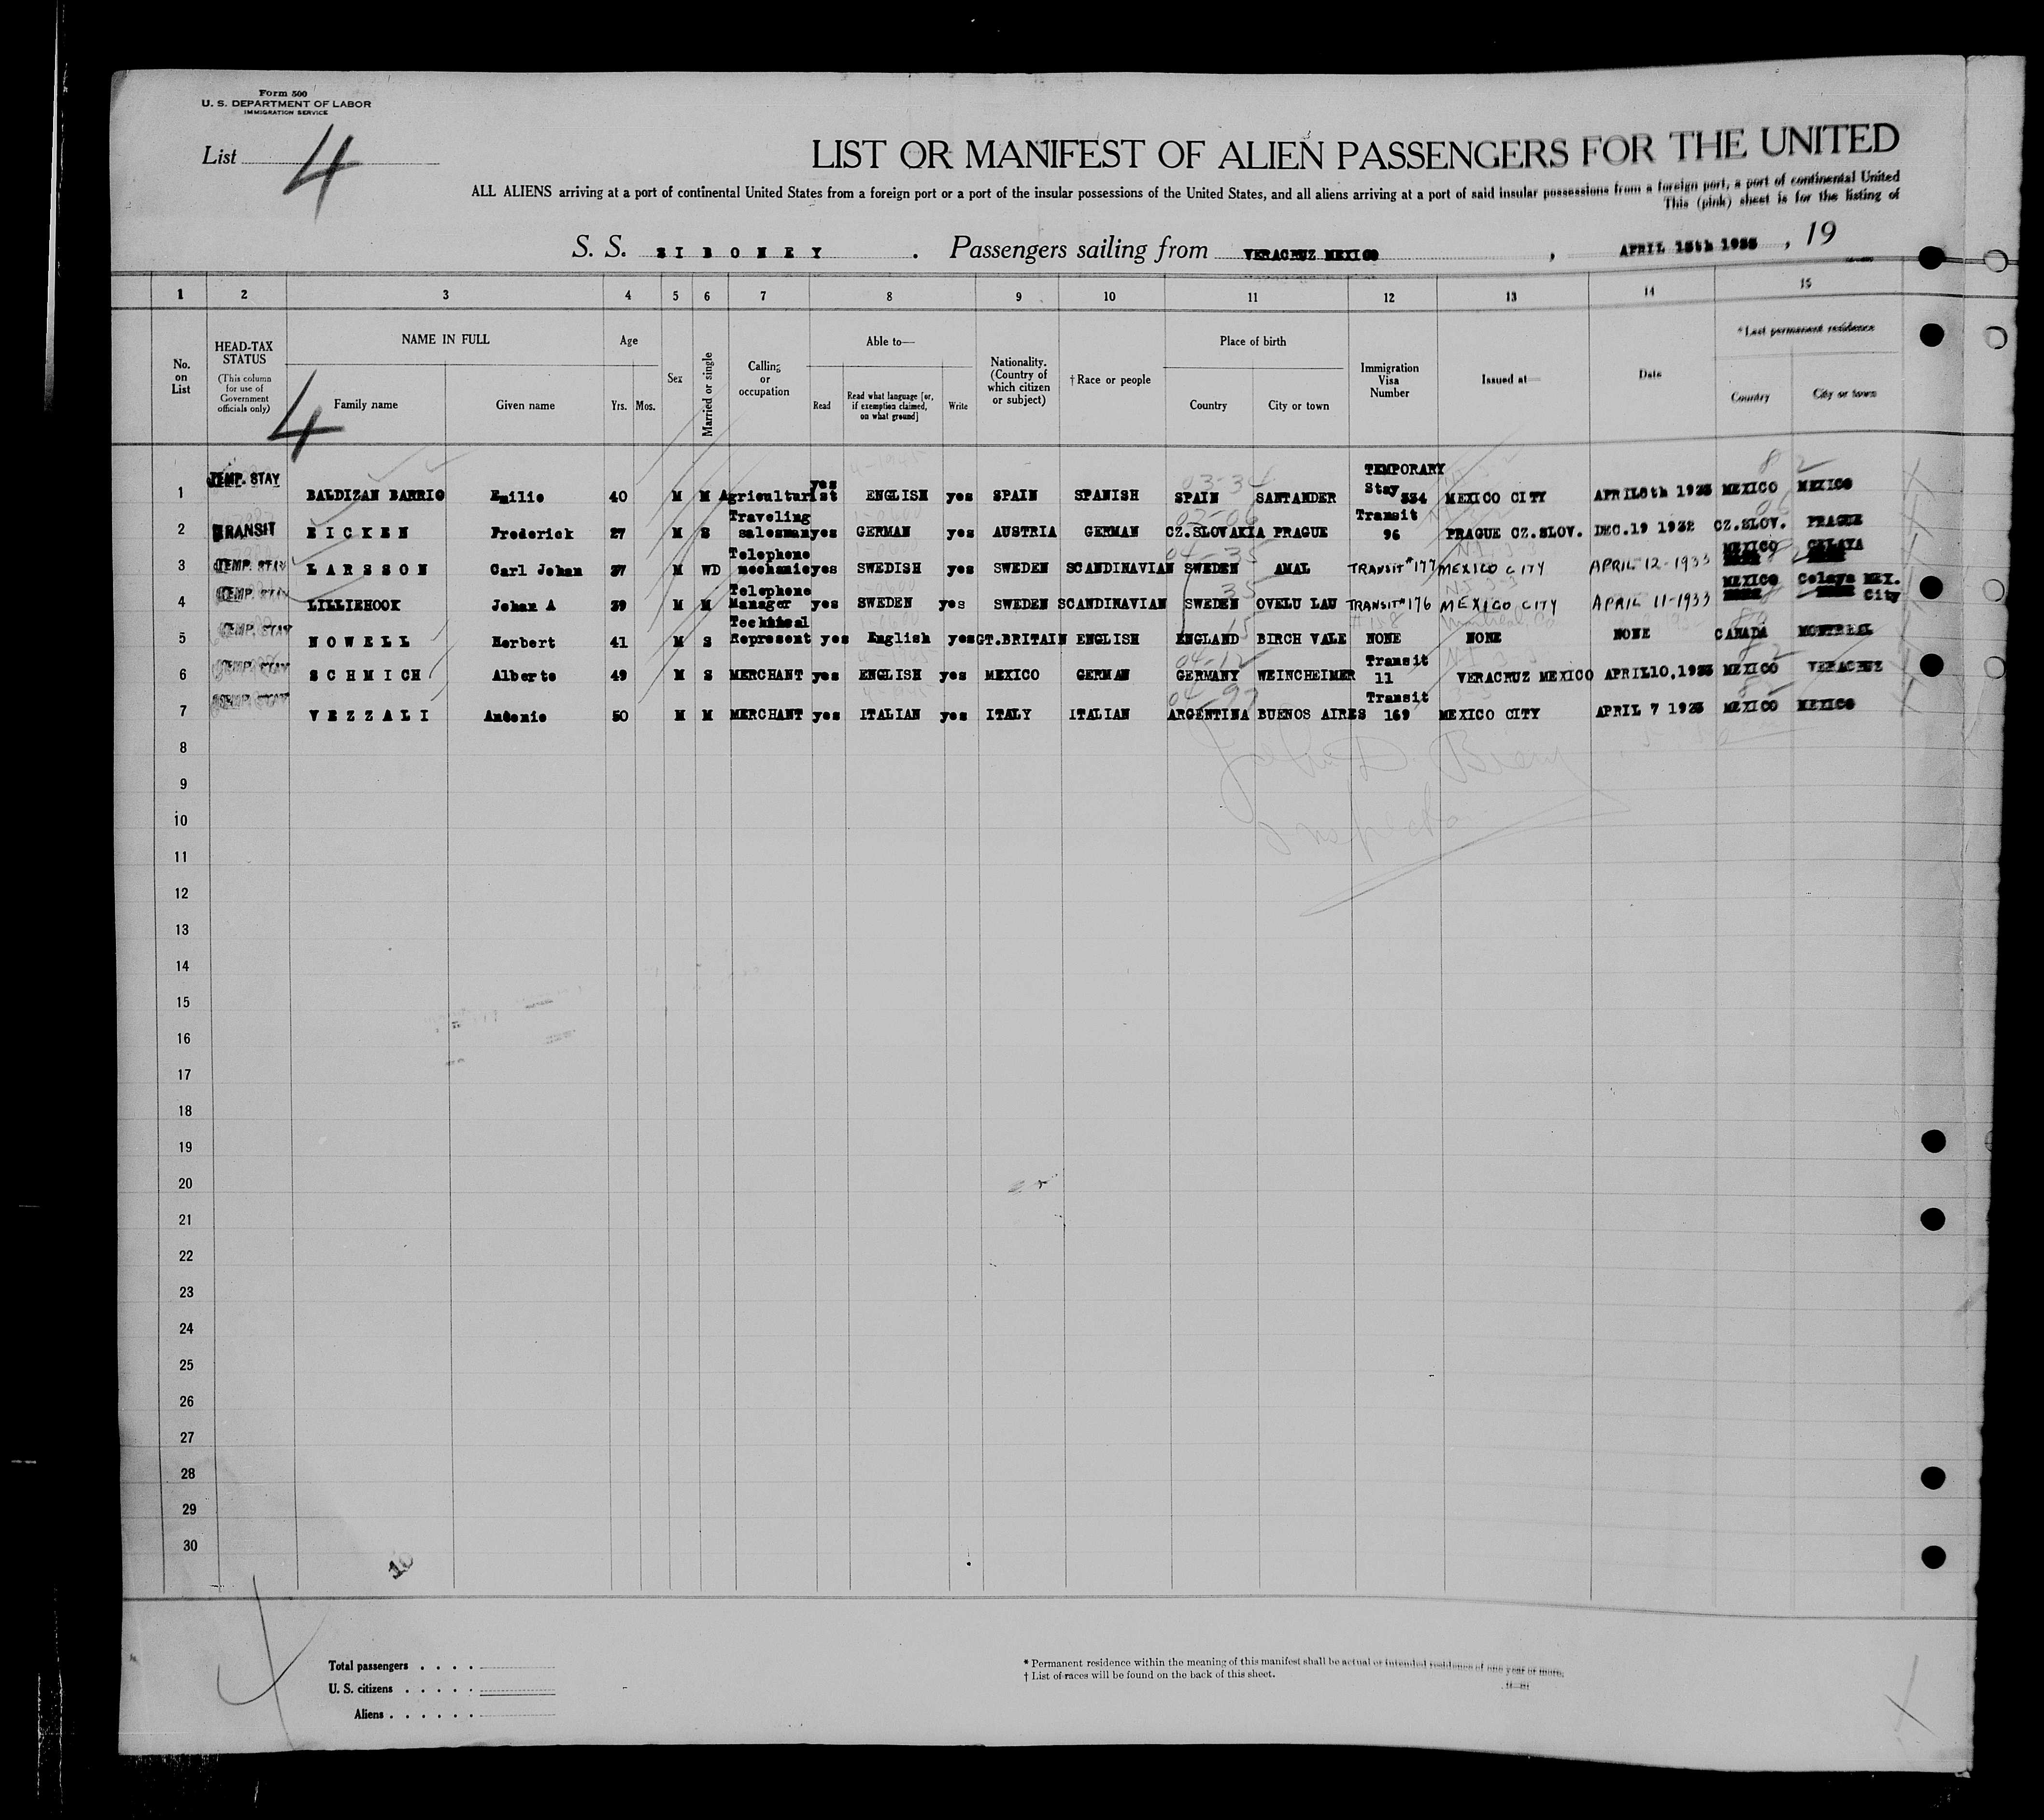 Form 500
U. S. DEPARTMENT OF LABOR
IMMIGRATION SERVICE
List 4
LIST OR MANIFEST OF ALIEN PASSENGERS FOR THE UNITED
ALL ALIENS arriving at a port of continental United States from a foreign port or a port of the insular possessions of the United States, and all aliens arriving at a port of said insular possessions from a foreign port, a port of continental United
This (pink) sheet is for the listing of
S. S. SIBONEY . Passengers sailing from VERACRUZ MEXICO , APRIL 15th 1933 , 19
1 2 3 4 5 6 7 8 9 10 11 12 13 14 15
No. on List
HEAD-TAX STATUS (This column for use of Government officials only)
NAME IN FULL Family name Given name
Age Yrs. Mos.
Sex
Married or single
Calling or occupation
Able to— Read Read what language [or, if exemption claimed, on what ground] Write
Nationality. (Country of which citizen or subject)
† Race or people
Place of birth Country City or town
Immigration Visa Number
Issued at—
Date
* Last permanent residence Country City or town
4
1 TEMP. STAY BALDIZAN BARRIO Emilio 40 M M Agriculturist yes ENGLISH yes SPAIN SPANISH SPAIN SANTANDER TEMPORARY Stay 334 MEXICO CITY APRIL 8th 1933 MEXICO MEXICO
2 TRANSIT EICKEN Frederick 27 M S Traveling salesman yes GERMAN yes AUSTRIA GERMAN CZ.SLOVAKIA PRAGUE Transit 96 PRAGUE CZ.SLOV. DEC.19 1932 CZ.SLOV. PRAGUE
3 TEMP. STAY LARSSON Carl Johan 37 M WD Telephone mechanic yes SWEDISH yes SWEDEN SCANDINAVIAN SWEDEN AMAL TRANSIT #177 MEXICO CITY APRIL 12-1933 MEXICO CELAYA
4 TEMP. STAY LILLIEHOOK Johan A 39 M M Telephone Manager yes SWEDEN yes SWEDEN SCANDINAVIAN SWEDEN OVELU LAU TRANSIT #176 MEXICO CITY APRIL 11-1933 MEXICO Celaya MEX. City
5 TEMP. STAY NOWELL Herbert 41 M S Technical Represent yes English yes GT.BRITAIN ENGLISH ENGLAND BIRCH VALE NONE NONE NONE CANADA MONTREAL
6 TEMP. STAY SCHMICH Alberto 49 M S MERCHANT yes ENGLISH yes MEXICO GERMAN GERMANY WEINCHEIMER Transit 11 VERACRUZ MEXICO APRIL 10, 1933 MEXICO VERACRUZ
7 TEMP. STAY VEZZALI Antonio 50 M M MERCHANT yes ITALIAN yes ITALY ITALIAN ARGENTINA BUENOS AIRES Transit 169 MEXICO CITY APRIL 7 1933 MEXICO MEXICO
8
9
10
Inspector
11
12
13
14
15
16
17
18
19
20
21
22
23
24
25
26
27
28
29
30
10
Total passengers
U. S. citizens
Aliens
* Permanent residence within the meaning of this manifest shall be actual or intended residence of one year or more.
† List of races will be found on the back of this sheet.